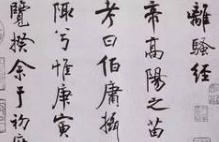 離騷經
帝高陽之苗
考曰伯庸攝
陬兮惟庚寅
覽揆余于初